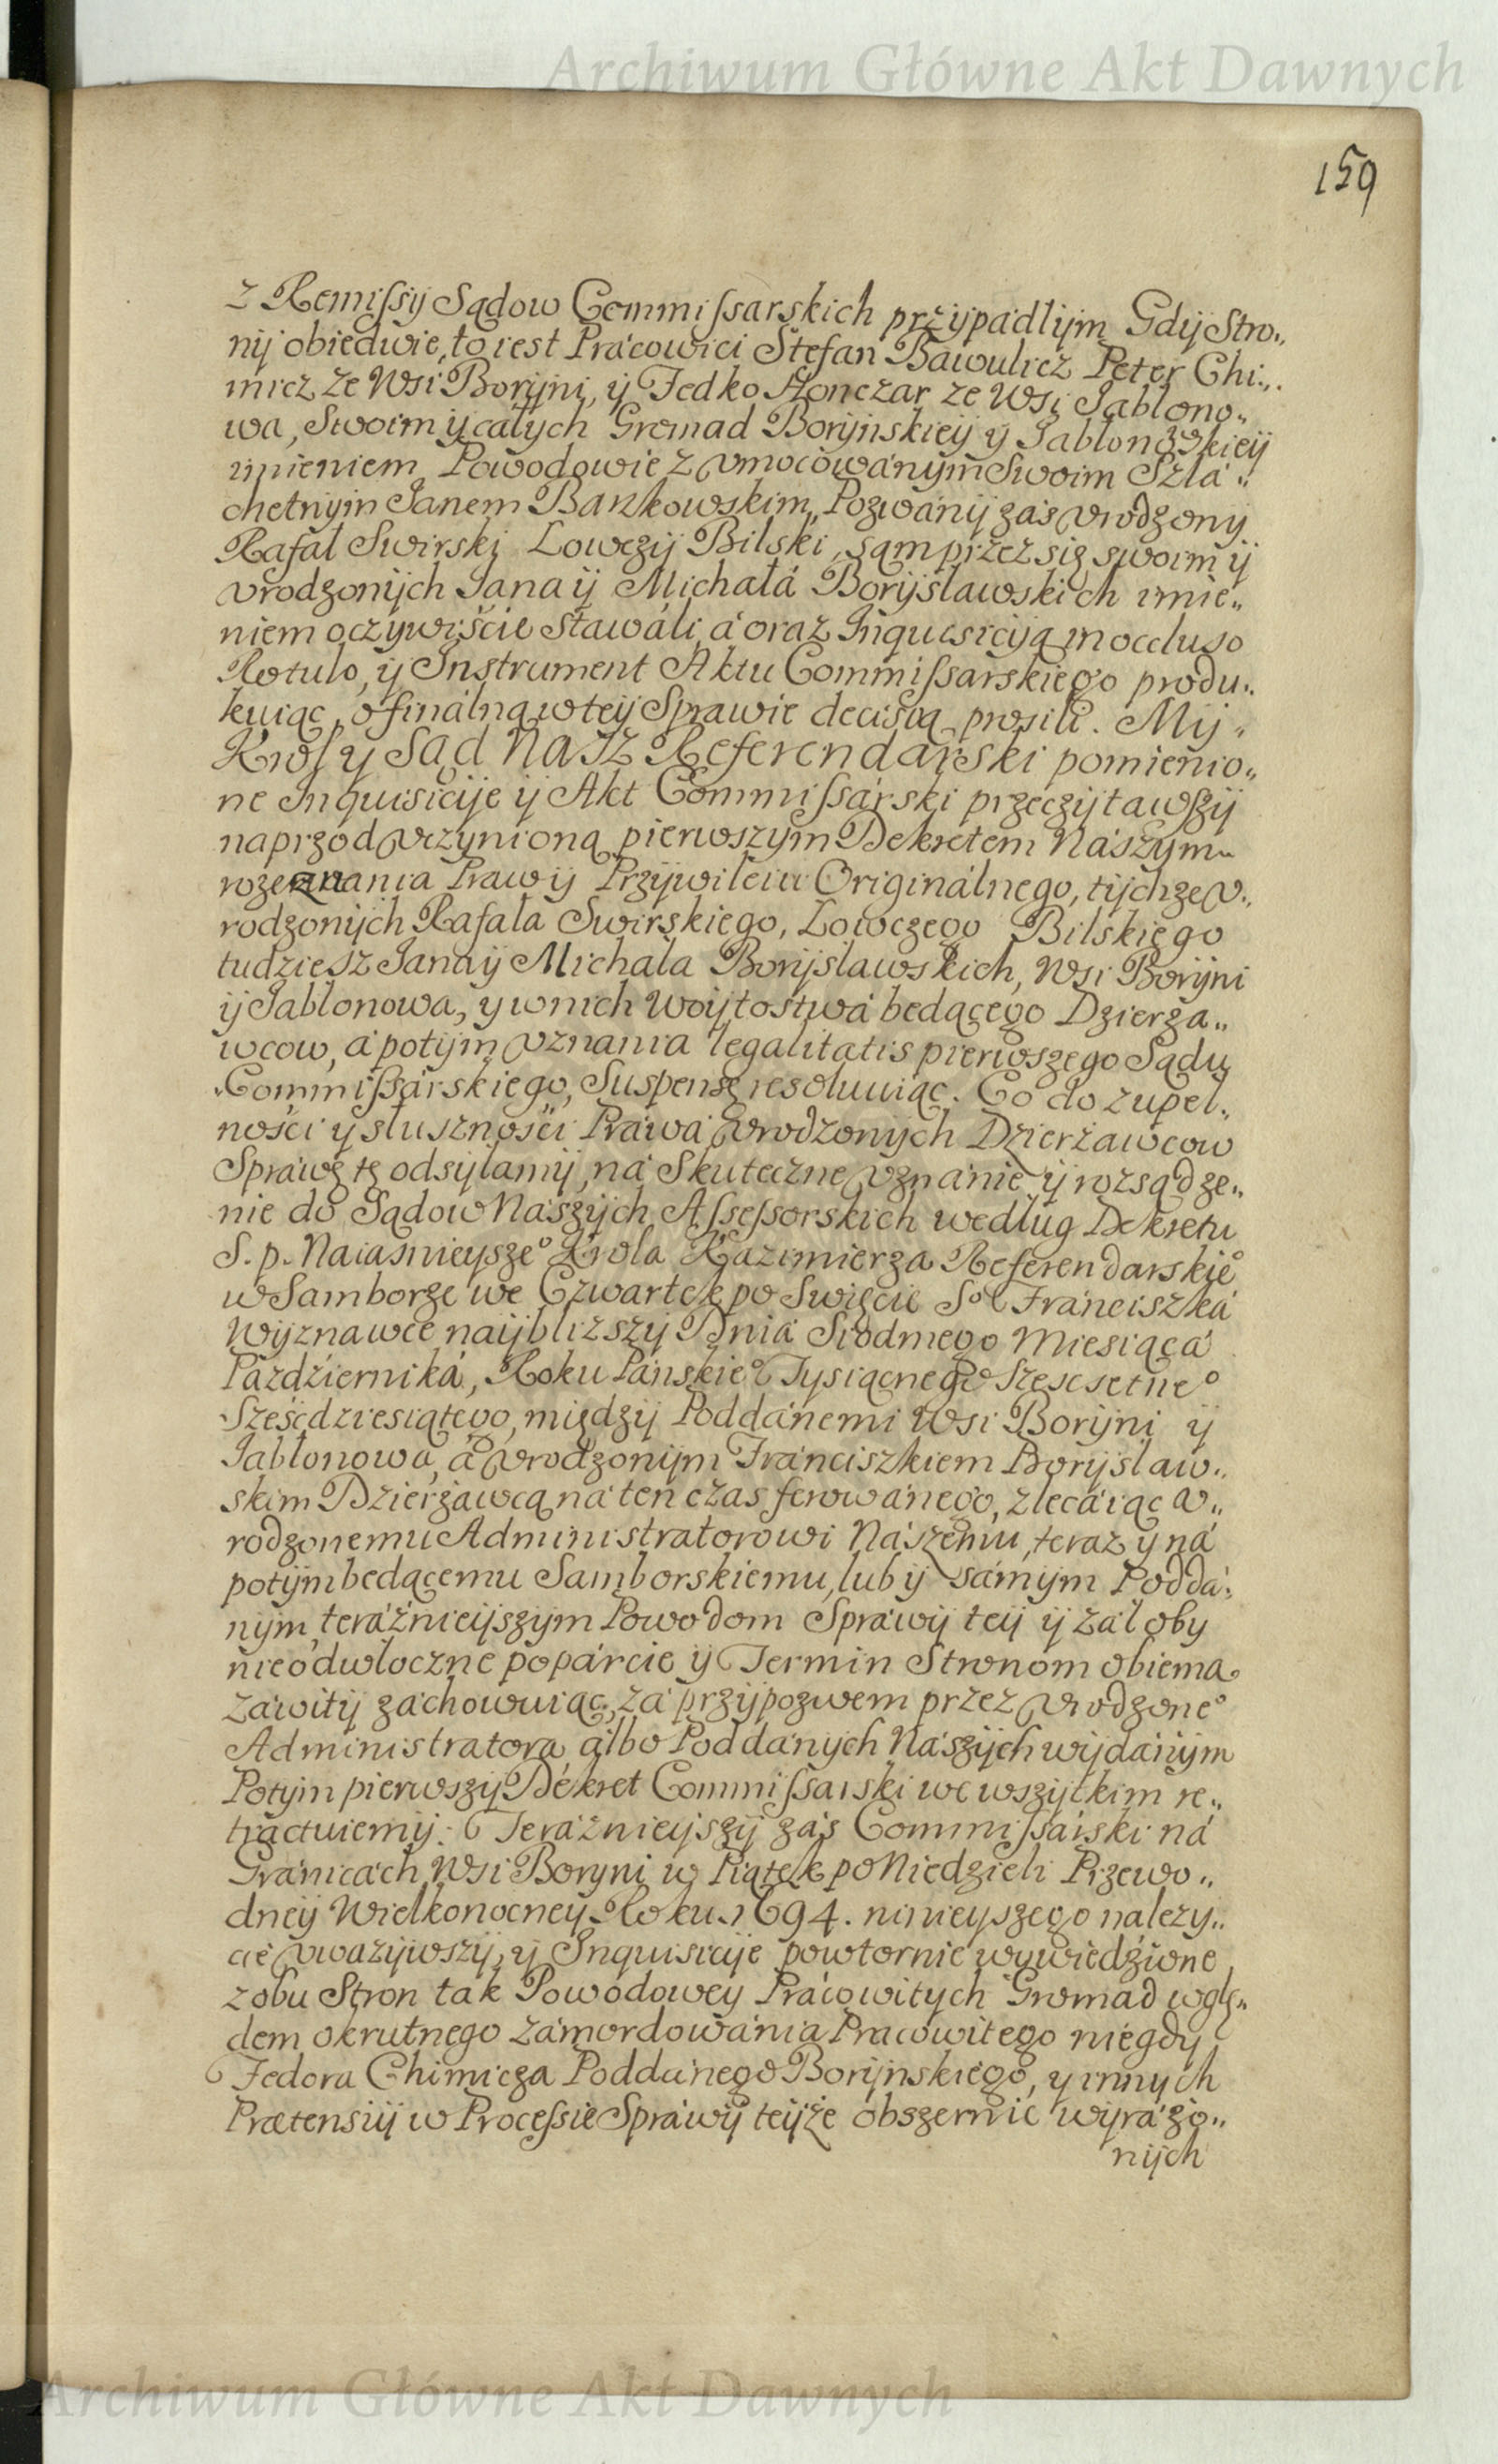 Archiwum Główne Akt Dawnych
159
z Remissij Sądow Commissarskich przypadlijm Gdij Stro„
nij obiedwie, to iest Prácowici Stefan Bawulicz Peter Chi„
micz ze Wsi Borijni, ij Fedko Honczar ze Wsi Jablono„
wa, Swoim ij całych Gromad Borijnskieij ij Jablonowskieij
imieniem Powodowie z vmocowánym Swoim Szlá„
chetnijm Janem Bankowskim, Pozwánij zaś vrodzonij
Rafał Swirski Lowczij Bilski, sam przez się swoim ij
vrodzonijch Jana ij Michałá Borijslawskich imie„
niem oczywiście stawáli, á oraz Inquisiciją in occluso
Rotulo, ij Instrument Aktu Commissarskiego produ„
kuiąc, o finálną w teij Sprawie decisią prosili. Mij
Krol y Sąd Nasz Referendárski pomienio„
ne Inquisicije ij Akt Commissárski przeczijtawszij
naprzod vczynioną pierwszym Dekretem Nászym
rozeznania Praw ij Przijwileiu Originálnego, tijchze v„
rodzonijch Rafała Swirskiego, Lowczego Bilskiego
tudziesz Jana ij Michala Borijslawskich, Wsi Borijni
ij Jablonowa, y w nich Woijtostwá bedącego Dzierza„
wcow, á potijm vznania legalitatis pierwszego Sądu
Commissárskiego, Suspensę resoluuiąc. Co do zupeł„
ności y słuszności Práwá vrodzonijch Dzierżawcow
Spráwę tę odsyłamij, ná Skuteczne vznánie ij rozsądze„
nie do Sądow Nászijch Assessorskich według Dekretu
S. p. Naiasnieysze° Krola Kazimierza Referendarskie°
w Samborze we Czwartek po Swięcie S° Fránciszká
Wijznawce naijblizszij Dniá Siodmego Miesiącá
Październiká, Roku Pánskie° Tysiącnego Szescsetne°
Sześćdziesiątego, międzij Poddánemi Wsi Borijni ij
Jabłonowa, á vrodzonijm Fránciszkiem Borijslaw„
skim Dzierżawcą ná ten czas ferowánego, zlecáiąc v„
rodzonemu Administratorowi Nászemu, teraz y ná
potijm bedącemu Samborskiemu, lub ij sámijm Poddá„
nijm, teráźnieijszijm Powodom Spráwij teij ij záłoby
nieodwłoczne popárcie ij Termin Stronom obiema
záwitij záchowuiąc, zá przijpozwem przez vrodzone°
Administratora álbo Poddánych Nászijch wijdánijm
Potijm pierwszij Dekret Commissarski we wszijtkim re„
tráctuiemij. Teráźnieijszij záś Commissárski ná
Gránicách Wsi Boryni w Piątek po Niedzieli Przewo„
dneij Wielkonocney Roku 1694. ninieyszego nalezy„
cie vwazijwszij, ij Inquisicije powtornie wywiedzione
z obu Stron tak Powodowey Prácowitych Gromad wglę„
dem okrutnego zámordowánia Pracowitego niegdy
Fedora Chimicza Poddánego Borijnskiego, y innych
Prætensiij w Processie Spráwij teijże obszernie wijráżo„
nijch
Archiwum Główne Akt Dawnych